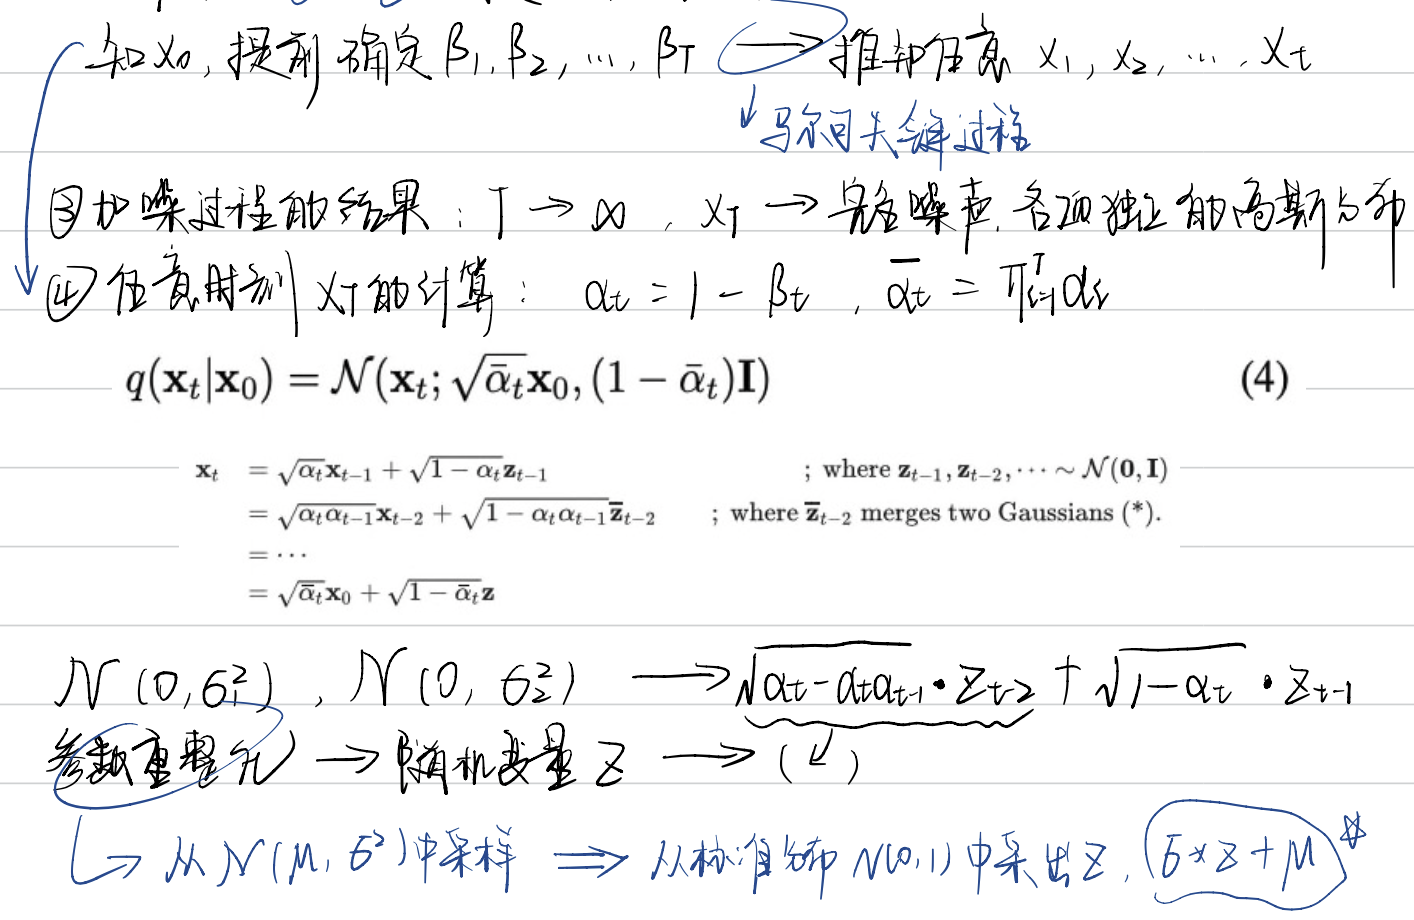 知x₀, 提前确定 β₁, β₂, ..., β_T → 推却任意 x₁, x₂, ..., x_t
马尔可夫链过程
③加噪过程的结果: T → ∞, x_T → 完全噪声, 各项独立的高斯分布
④任意时刻 x_T 的计算: α_t = 1 - β_t, ᾱ_t = ∏ᵀᵢ₌₁ αᵢ
q(x_t|x₀) = N(x_t; √ᾱ_t x₀, (1 − ᾱ_t)I) (4)
x_t = √α_t x_{t−1} + √(1 − α_t) z_{t−1} ; where z_{t−1}, z_{t−2}, ··· ∼ N(0, I)
= √(α_t α_{t−1}) x_{t−2} + √(1 − α_t α_{t−1}) z̄_{t−2} ; where z̄_{t−2} merges two Gaussians (*).
= ···
= √ᾱ_t x₀ + √(1 − ᾱ_t) z
N(0, σ₁²), N(0, σ₂²) → √(α_t - α_tα_{t-1}) · z_{t-2} + √(1 - α_t) · z_{t-1}
参数重整化 → 随机变量 z → (↙)
从 N(μ, σ²) 中采样 ⇒ 从标准分布 N(0,1) 中采出 z, (σ×z+μ)*